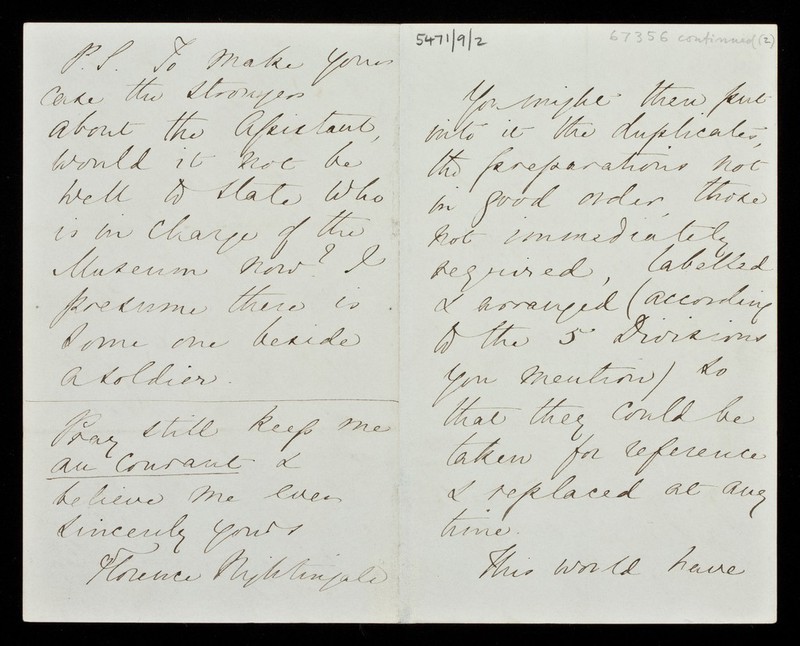 P.S. To make your
case the stronger
about the Assistant,
would it not be
well to state who
is in charge of the
Museum now? I
presume there is
some one beside
a soldier.
Pray still keep me
au courant &
believe me ever
sincerely yours
Florence Nightingale
5471/9/2
67356 continued (2)
You might then put
into it the duplicates,
the preparations not
in good order, those
not immediately
required, labelled
& arranged (according
to the 5 Divisions
you mention) so
that they could be
taken for reference
& replaced at any
time.
This would have